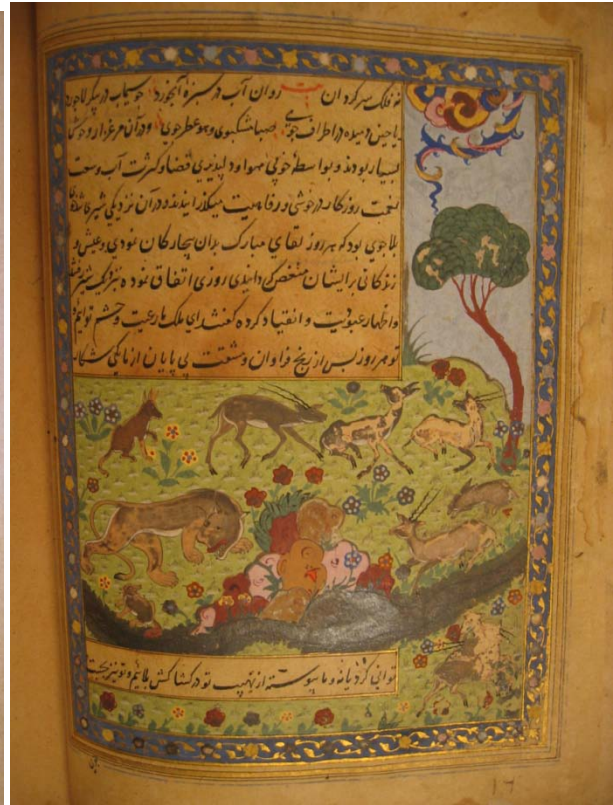 نه فلک سرکردان بیت روان آب در سبزه آبخورد چو سیماب در پیکر لاجورد
ریاحین دمیده در اطراف جوی صبا مشکبوی و هوا عطرجوی و در آن مرغزار وحوش
بسیار بودند و بواسطه خوبی هوا و دلپذیری فضا و کثرت آب و وسعت
نعمت روزکار در خوشی و رفاهیت میکذرانیدند و در آن نزدیکی شیری
بلاجوی بود که هر روز لقای مبارک بدان بیچارکان نمودی و عیش و
زندکانی برایشان منغص کردانیدی روزی اتفاق نموده بنزدیک شیر
و اظهار عبودیت و انقیاد کرده کفتند ای ملک ما رعیت و حشم توایم و
تو هر روز پس از رنج فراوان و مشقت بی پایان از ما یکی شکار
توانی کرد یا نه و ما پیوسته از نهیب تو در کشاکش بلائیم و تو نیز بجست
۱۶